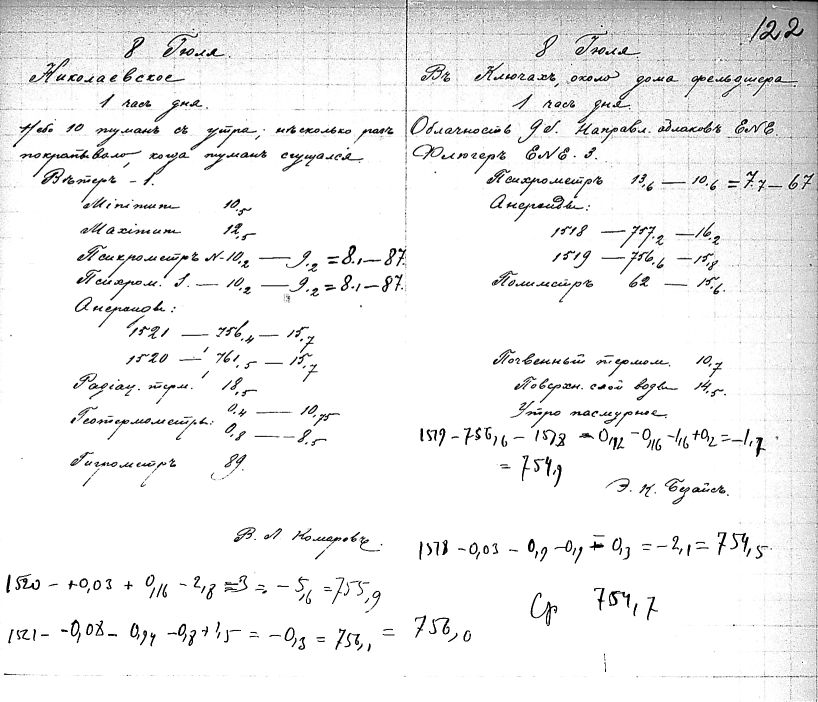 122
8 Іюля.
Николаевское
1 часъ дня.
10 туманъ съ утра; нѣсколько разъ
покрапывало, когда туманъ сгущался.
Вѣтеръ - 1.
Minimum 10,5
Maximum 12,5
Психрометръ N - 10,2 — 9,2 = 8.1 — 87
Психром. S. — 10,2 — 9,2 = 8.1 — 87
Анероиды:
1521 — 756,4 — 15,7
1520 — 761,5 — 15,7
Радіац. терм. 18,5
Геотермометры: 0,4 — 10,75
0,8 — 8,5
Гигрометръ 89.
В. Л. Комаровъ.
1520 - +0,03 + 0,16 - 2,8 = - 5,6 = 755,9
1521 - -0,08 - 0,94 - 0,8 + 1,5 = - 0,3 = 756,1 = 756,0
8 Іюля
Въ Ключахъ, около дома фельдшера.
1 часъ дня.
Облачность 9 Направл. облаковъ ENE.
Флюгеръ ENE. 3.
Психрометръ 13,6 — 10,6 = 7.7 — 67
Анероиды:
1518 — 757,2 — 16,2
1519 — 756,6 — 15,8
Полиметръ 62 — 15,6.
Почвенный термом. 10,7
Поверхн. слой воды 14,5.
Утро пасмурное.
1519 - 756,6 - 0,12 - 0,16 - 1,6 + 0,2 = - 1,7
= 754,9
Э. К. Безайсъ.
1518 - 0,03 - 0,9 - 0,9 - 0,3 = - 2,1 = 754,5
Ср 754,7